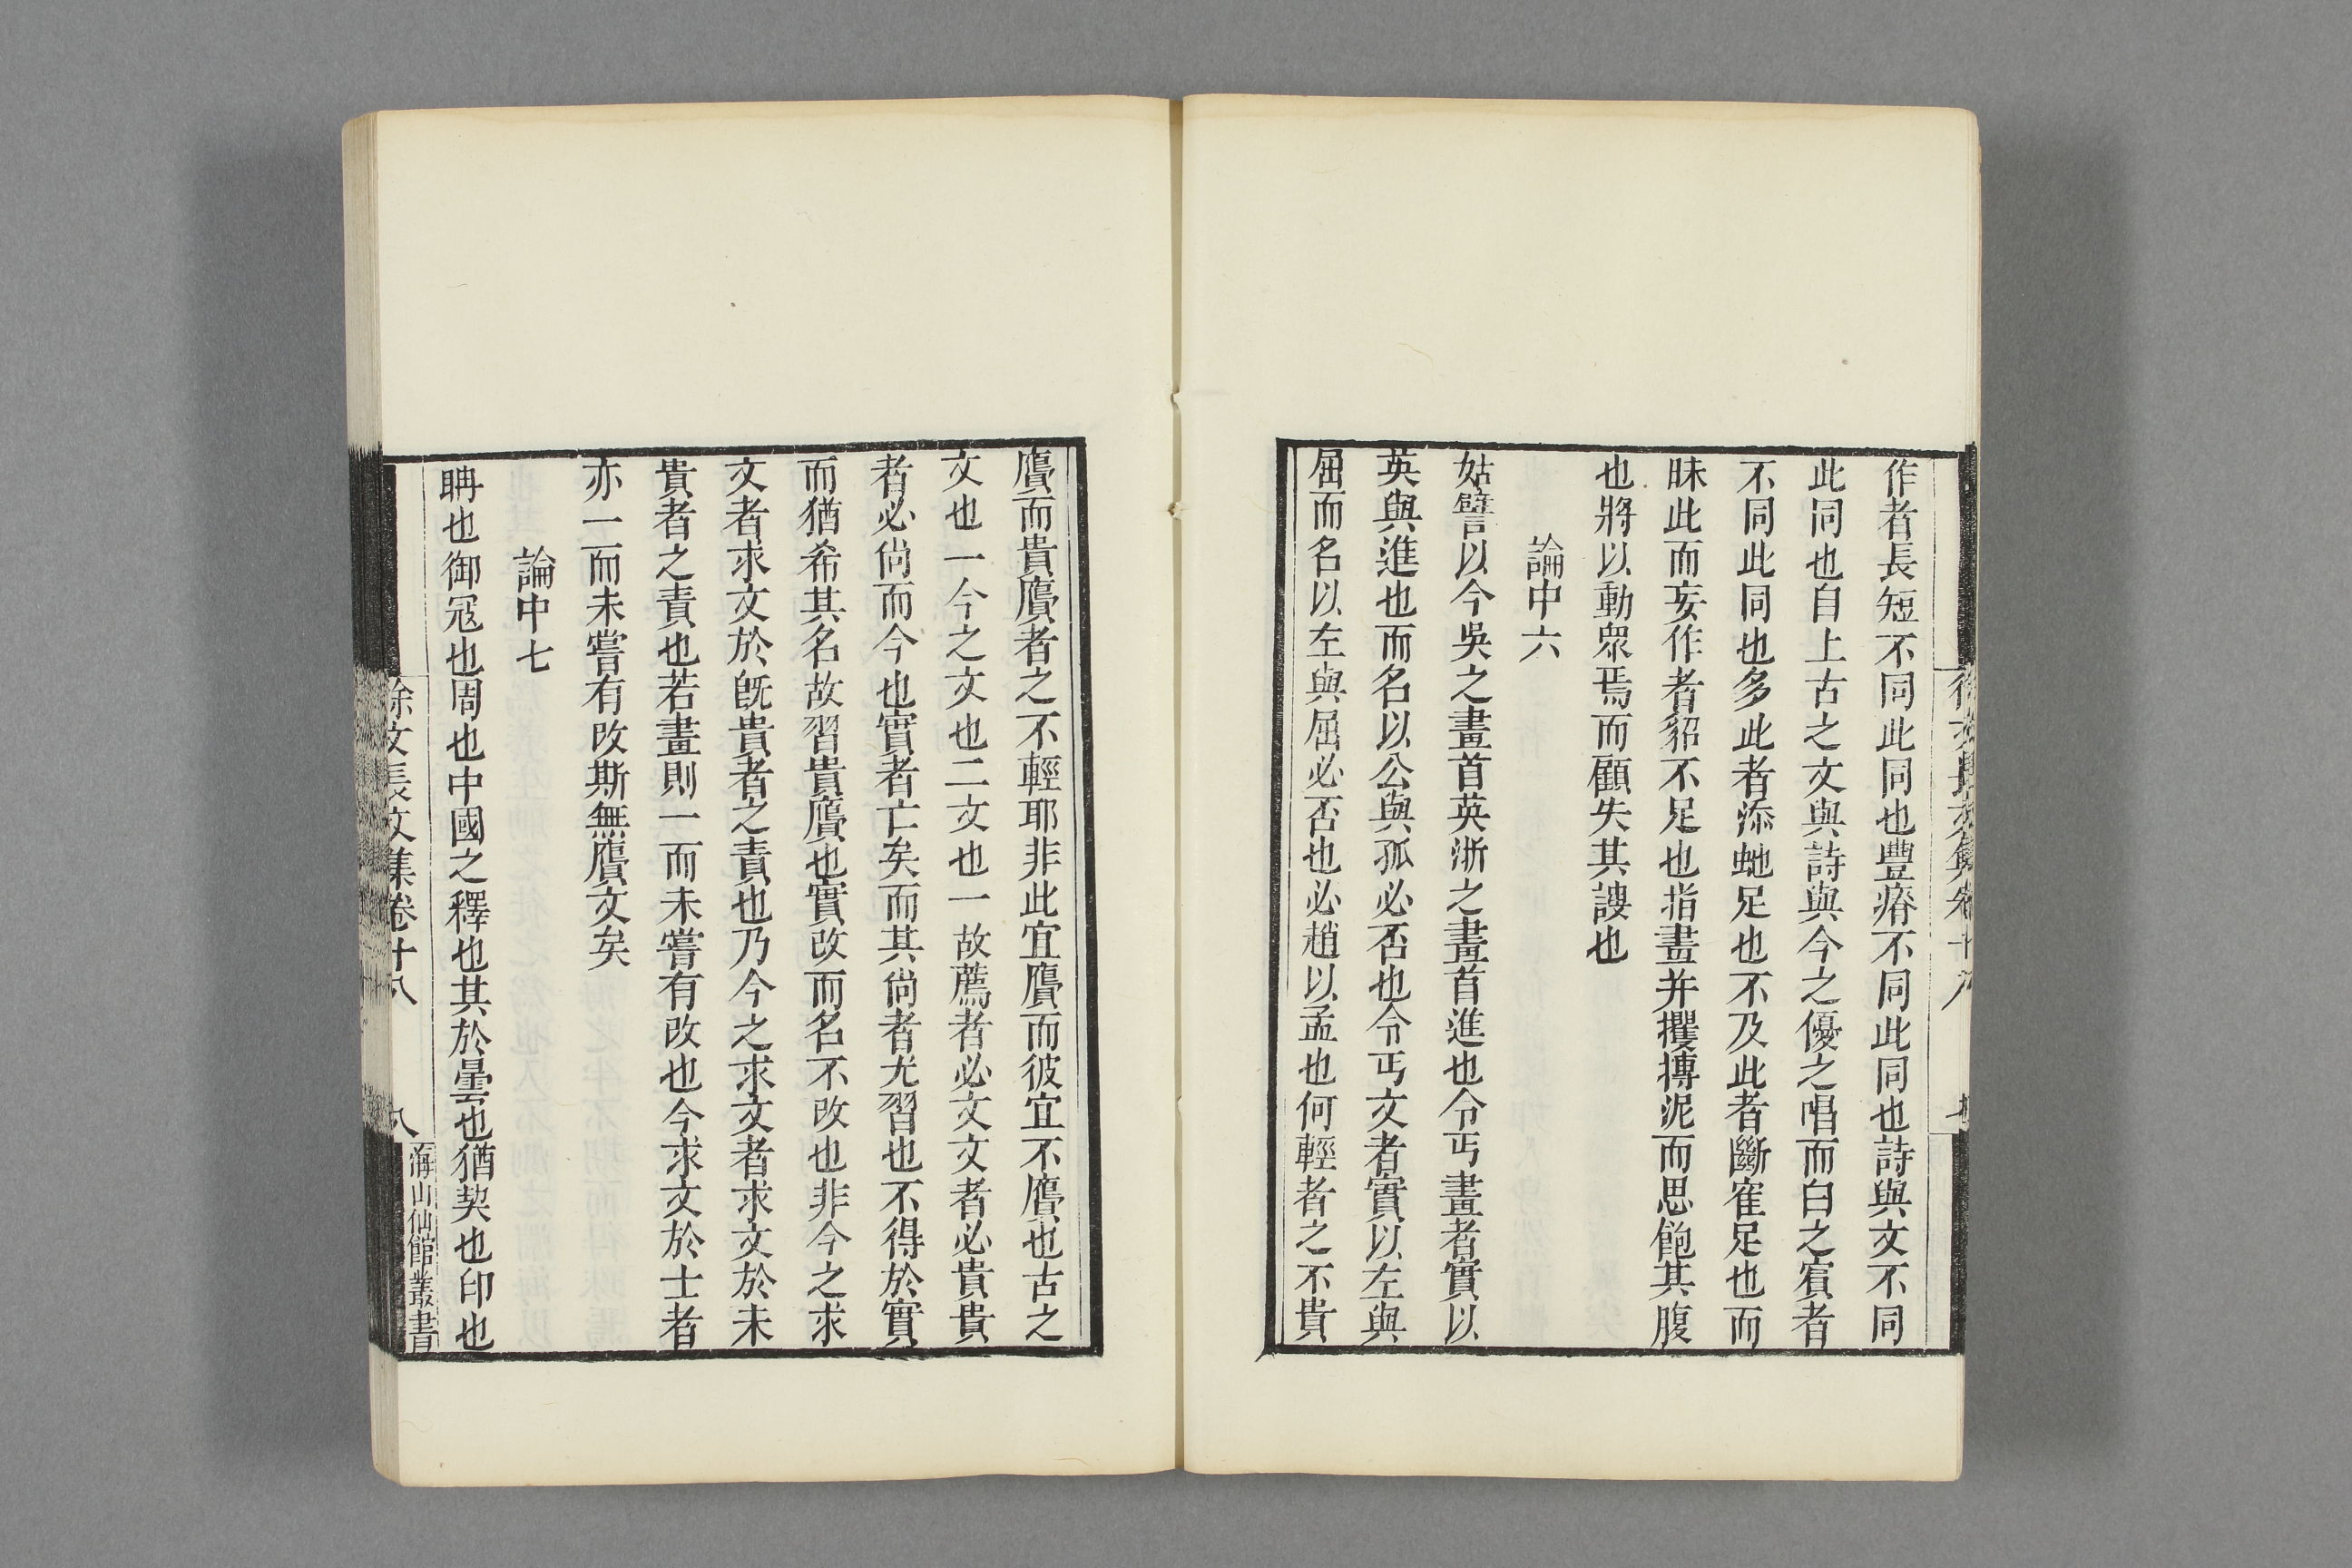 作者長短不同此同也豐瘠不同此同也詩與文不同
此同也自上古之文與詩與今之優之唱而白之賔者
不同此同也多此者添虵足也不及此者斷隺足也而
昧此而妄作者貂不足也指畫并攫摶泥而思飽其腹
也將以動眾焉而顧失其謏也
論中六
姑譬以今吳之畫首英浙之畫首進也令丐畫者實以
英與進也而名以公與孤必否也令丐文者實以左與
屈而名以左與屈必否也必趙以孟也何輕者之不貴
贋而貴贋者之不輕耶非此宜贋而彼宜不贋也古之
文也一今之文也二文也一故薦者必文文者必貴貴
者必尙而今也實者亡矣而其尙者尤習也不得於實
而猶希其名故習貴贋也實改而名不改也非今之求
文者求文於旣貴者之責也乃今之求文者求文於未
貴者之責也若畫則一而未嘗有改也今求文於士者
亦一而未嘗有改斯無贋文矣
論中七
聃也御冦也周也中國之釋也其於曇也猶契也印也
徐文長文集卷十八
八
海山仙館叢書